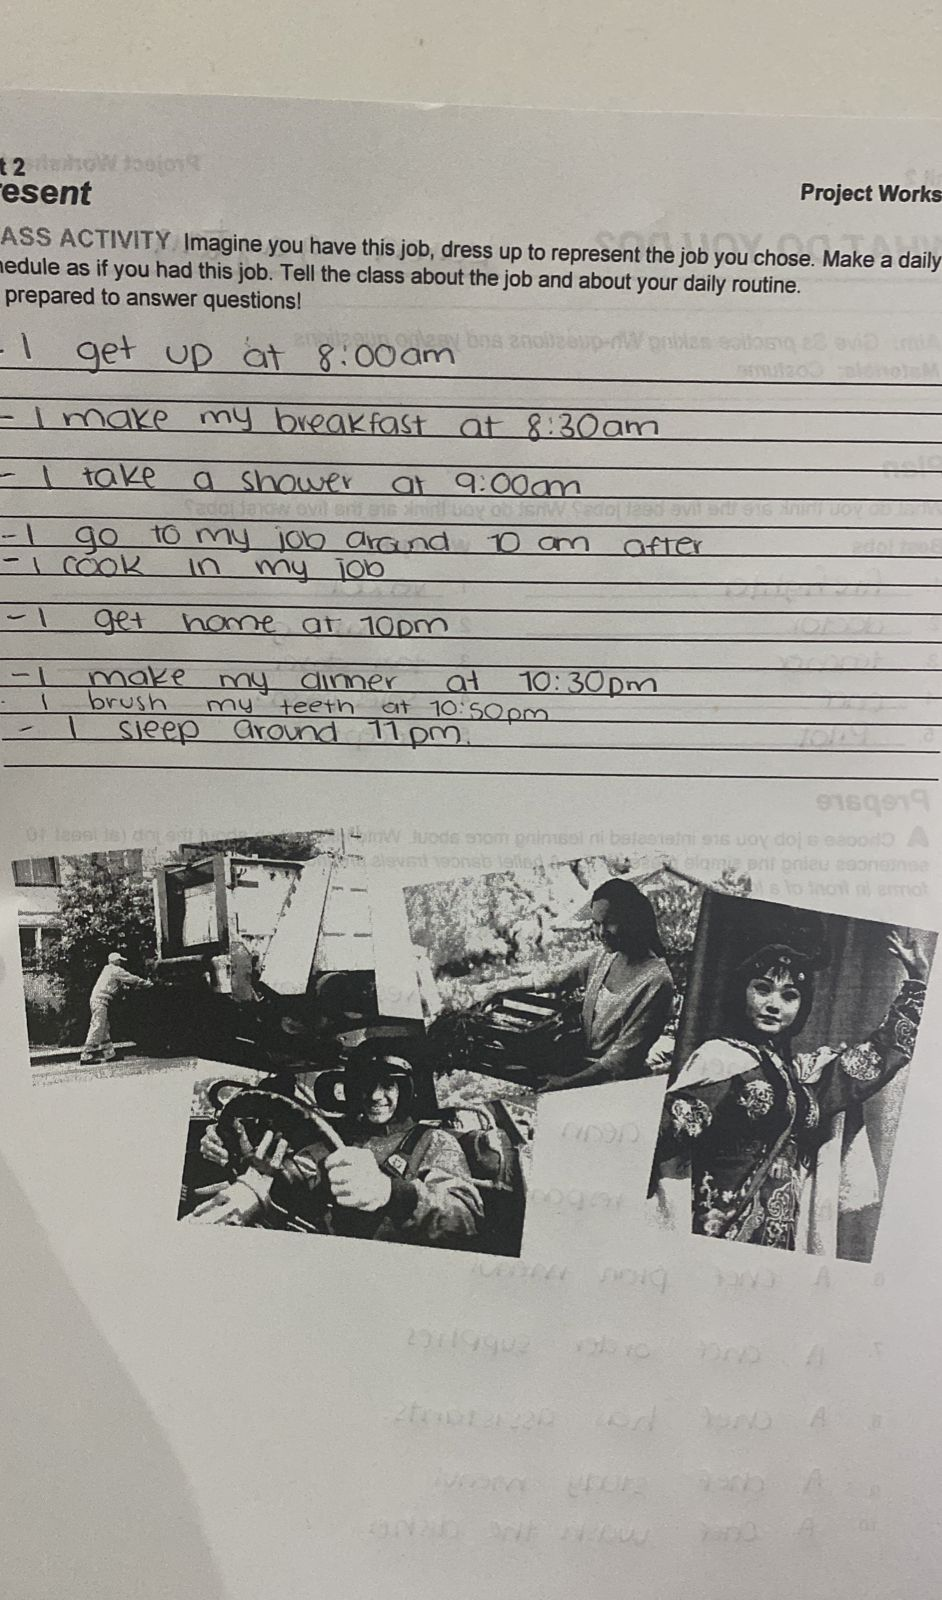 t 2
esent
Project Works
ASS ACTIVITY Imagine you have this job, dress up to represent the job you chose. Make a daily
hedule as if you had this job. Tell the class about the job and about your daily routine.
prepared to answer questions!
- I get up at 8:00am
- I make my breakfast at 8:30am
- I take a shower at 9:00am
- I go to my job around 10 am after
- I cook in my job
- I get home at 10pm
- I make my dinner at 10:30pm
- I brush my teeth at 10:50pm
- I sleep around 11pm.